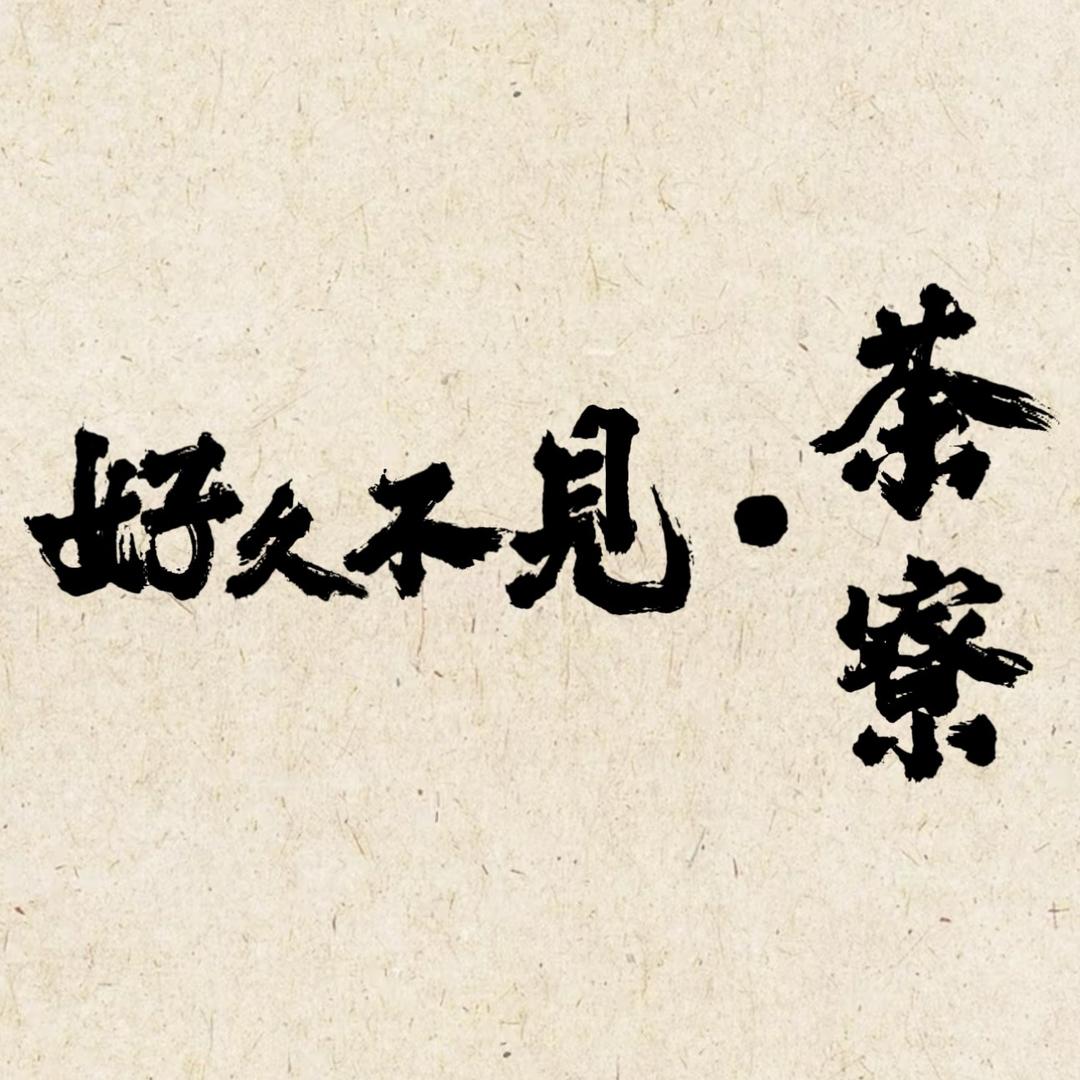 好久不見・茶寮